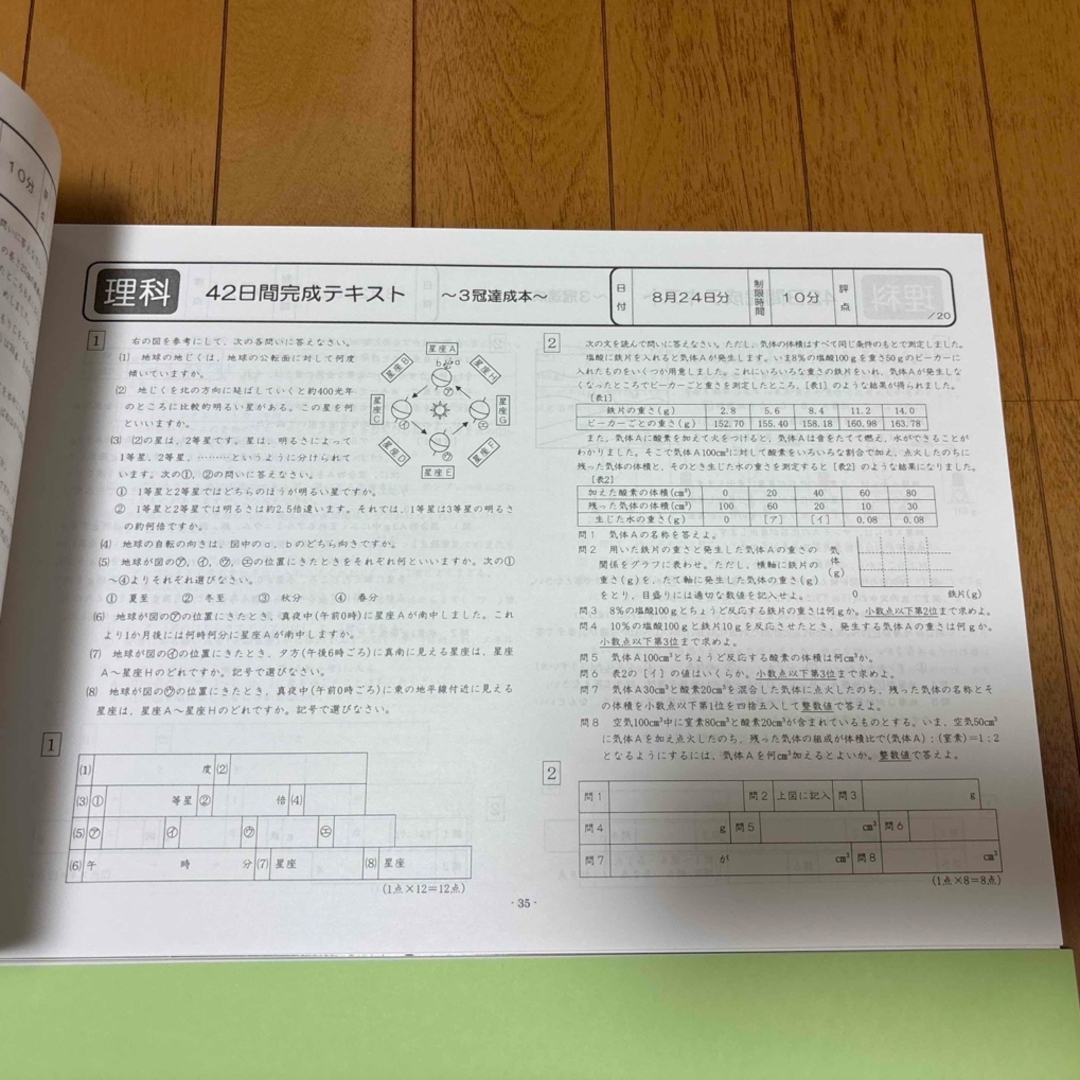 10分
理科
42日間完成テキスト
～3冠達成本～
日付
8月24日分
制限時間
10分
評点
／20
1
右の図を参考にして、次の各問いに答えなさい。
(1) 地球の地じくは、地球の公転面に対して何度
傾いていますか。
(2) 地じくを北の方向に延ばしていくと約400光年
のところに比較的明るい星がある。この星を何
といいますか。
(3) (2)の星は、2等星です。星は、明るさによって
1等星、2等星、………というように分けられて
います。次の①、②の問いに答えなさい。
① 1等星と2等星ではどちらのほうが明るい星ですか。
② 1等星と2等星では明るさは約2.5倍違います。それでは、1等星は3等星の明るさ
の約何倍ですか。
(4) 地球の自転の向きは、図中のa、bのどちら向きですか。
(5) 地球が図の㋐、㋑、㋒、㋓の位置にきたときをそれぞれ何といいますか。次の①
～④よりそれぞれ選びなさい。
① 夏至 ② 冬至 ③ 秋分 ④ 春分
(6) 地球が図の㋐の位置にきたとき、真夜中(午前0時)に星座Aが南中しました。これ
より1か月後には何時何分に星座Aが南中しますか。
(7) 地球が図の㋑の位置にきたとき、夕方(午後6時ごろ)に真南に見える星座は、星座
A～星座Hのどれですか。記号で選びなさい。
(8) 地球が図の㋒の位置にきたとき、真夜中(午前0時ごろ)に東の地平線付近に見える
星座は、星座A～星座Hのどれですか。記号で選びなさい。
星座A
星座B
星座H
b a
㋐
星座C
星座G
㋑
㋓
㋒
星座D
星座F
星座E
1
(1) 度 (2)
(3) ① 等星 ② 倍 (4)
(5) ㋐ ㋑ ㋒ ㋓
(6) 午 時 分 (7) 星座 (8) 星座
(1点×12＝12点)
2
次の文を読んで問いに答えなさい。ただし、気体の体積はすべて同じ条件のもとで測定しました。
塩酸に鉄片を入れると気体Aが発生します。いま8%の塩酸100gを重さ50gのビーカーに
入れたものをいくつか用意しました。これにいろいろな重さの鉄片をいれ、気体Aが発生しな
くなったところでビーカーごと重さを測定したところ、[表1]のような結果が得られました。
[表1]
鉄片の重さ(g) 2.8 5.6 8.4 11.2 14.0
ビーカーごとの重さ(g) 152.70 155.40 158.18 160.98 163.78
また、気体Aに酸素を加えて火をつけると、気体Aは音をたてて燃え、水ができることが
わかりました。そこで気体A100cm³に対して酸素をいろいろな割合で加え、点火したのちに
残った気体の体積と、そのとき生じた水の重さを測定すると[表2]のような結果になりました。
[表2]
加えた酸素の体積(cm³) 0 20 40 60 80
残った気体の体積(cm³) 100 60 20 10 30
生じた水の重さ(g) 0 [ア] [イ] 0.08 0.08
問1 気体Aの名称を答えよ。
問2 用いた鉄片の重さと発生した気体Aの重さの
関係をグラフに表わせ。ただし、横軸に鉄片の
重さ(g)を、たて軸に発生した気体の重さ(g)
をとり、目盛りには適切な数値を記入せよ。
気体(g)
0
鉄片(g)
問3 8%の塩酸100gとちょうど反応する鉄片の重さは何gか。小数点以下第2位まで求めよ。
問4 10%の塩酸100gと鉄片10gを反応させたとき、発生する気体Aの重さは何gか。
小数点以下第3位まで求めよ。
問5 気体A100cm³とちょうど反応する酸素の体積は何cm³か。
問6 表2の[イ]の値はいくらか。小数点以下第3位まで求めよ。
問7 気体A30cm³と酸素20cm³を混合した気体に点火したのち、残った気体の名称とそ
の体積を小数点以下第1位を四捨五入して整数値で答えよ。
問8 空気100cm³中に窒素80cm³と酸素20cm³が含まれているものとする。いま、空気50cm³
に気体Aを加え点火したのち、残った気体の組成が体積比で(気体A)：(窒素)＝1：2
となるようにするには、気体Aを何cm³加えるとよいか。整数値で答えよ。
2
問1 問2 上図に記入 問3 g
問4 g 問5 cm³ 問6
問7 が cm³ 問8 cm³
(1点×8＝8点)
- 35 -